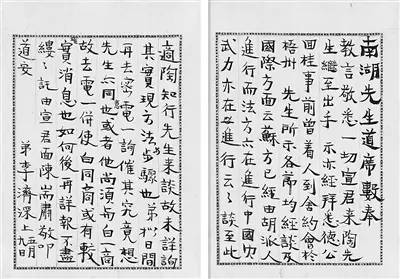 南湖先生道席數奉
教言敬悉一切宣君来陶先
生繼至出手示亦經拜悉德公
回桂事前曾着人到舍約會於
梧州 先生所示各節均經談及
國際方面云蘇方已經由胡派人
進行而法方亦在進行中國內
武力亦在進行云云談至此
適陶知行先生来談故未詳詢
其實現方法与步驟也弟於日間
再去密電一詢催其究竟想
先生亦同也或者他尚須与白一商
故去電一併使白同商或有較
實消息也如何後再詳報不盡
縷縷託由宣君面陳耑肅敬叩
道安
弟李濟深上 五月九日